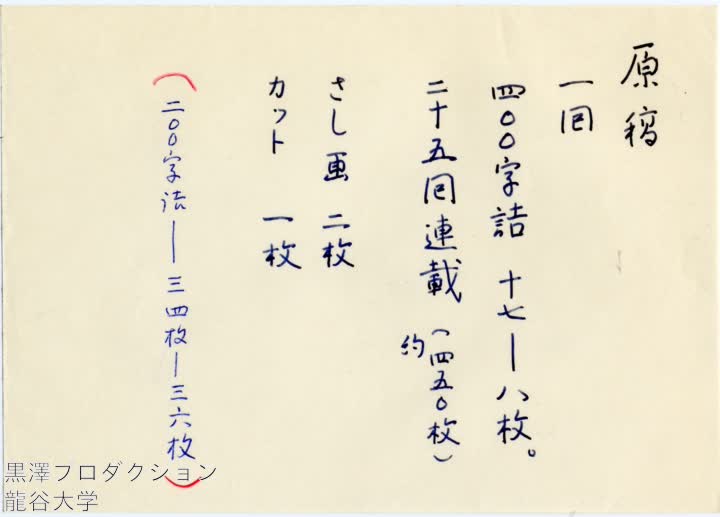 原稿
一回
四〇〇字詰 十七—八枚。
二十五回連載(四五〇枚)
約
さし画 二枚
カット 一枚
(二〇〇字詰—三四枚—三六枚)
黒澤プロダクション
龍谷大学